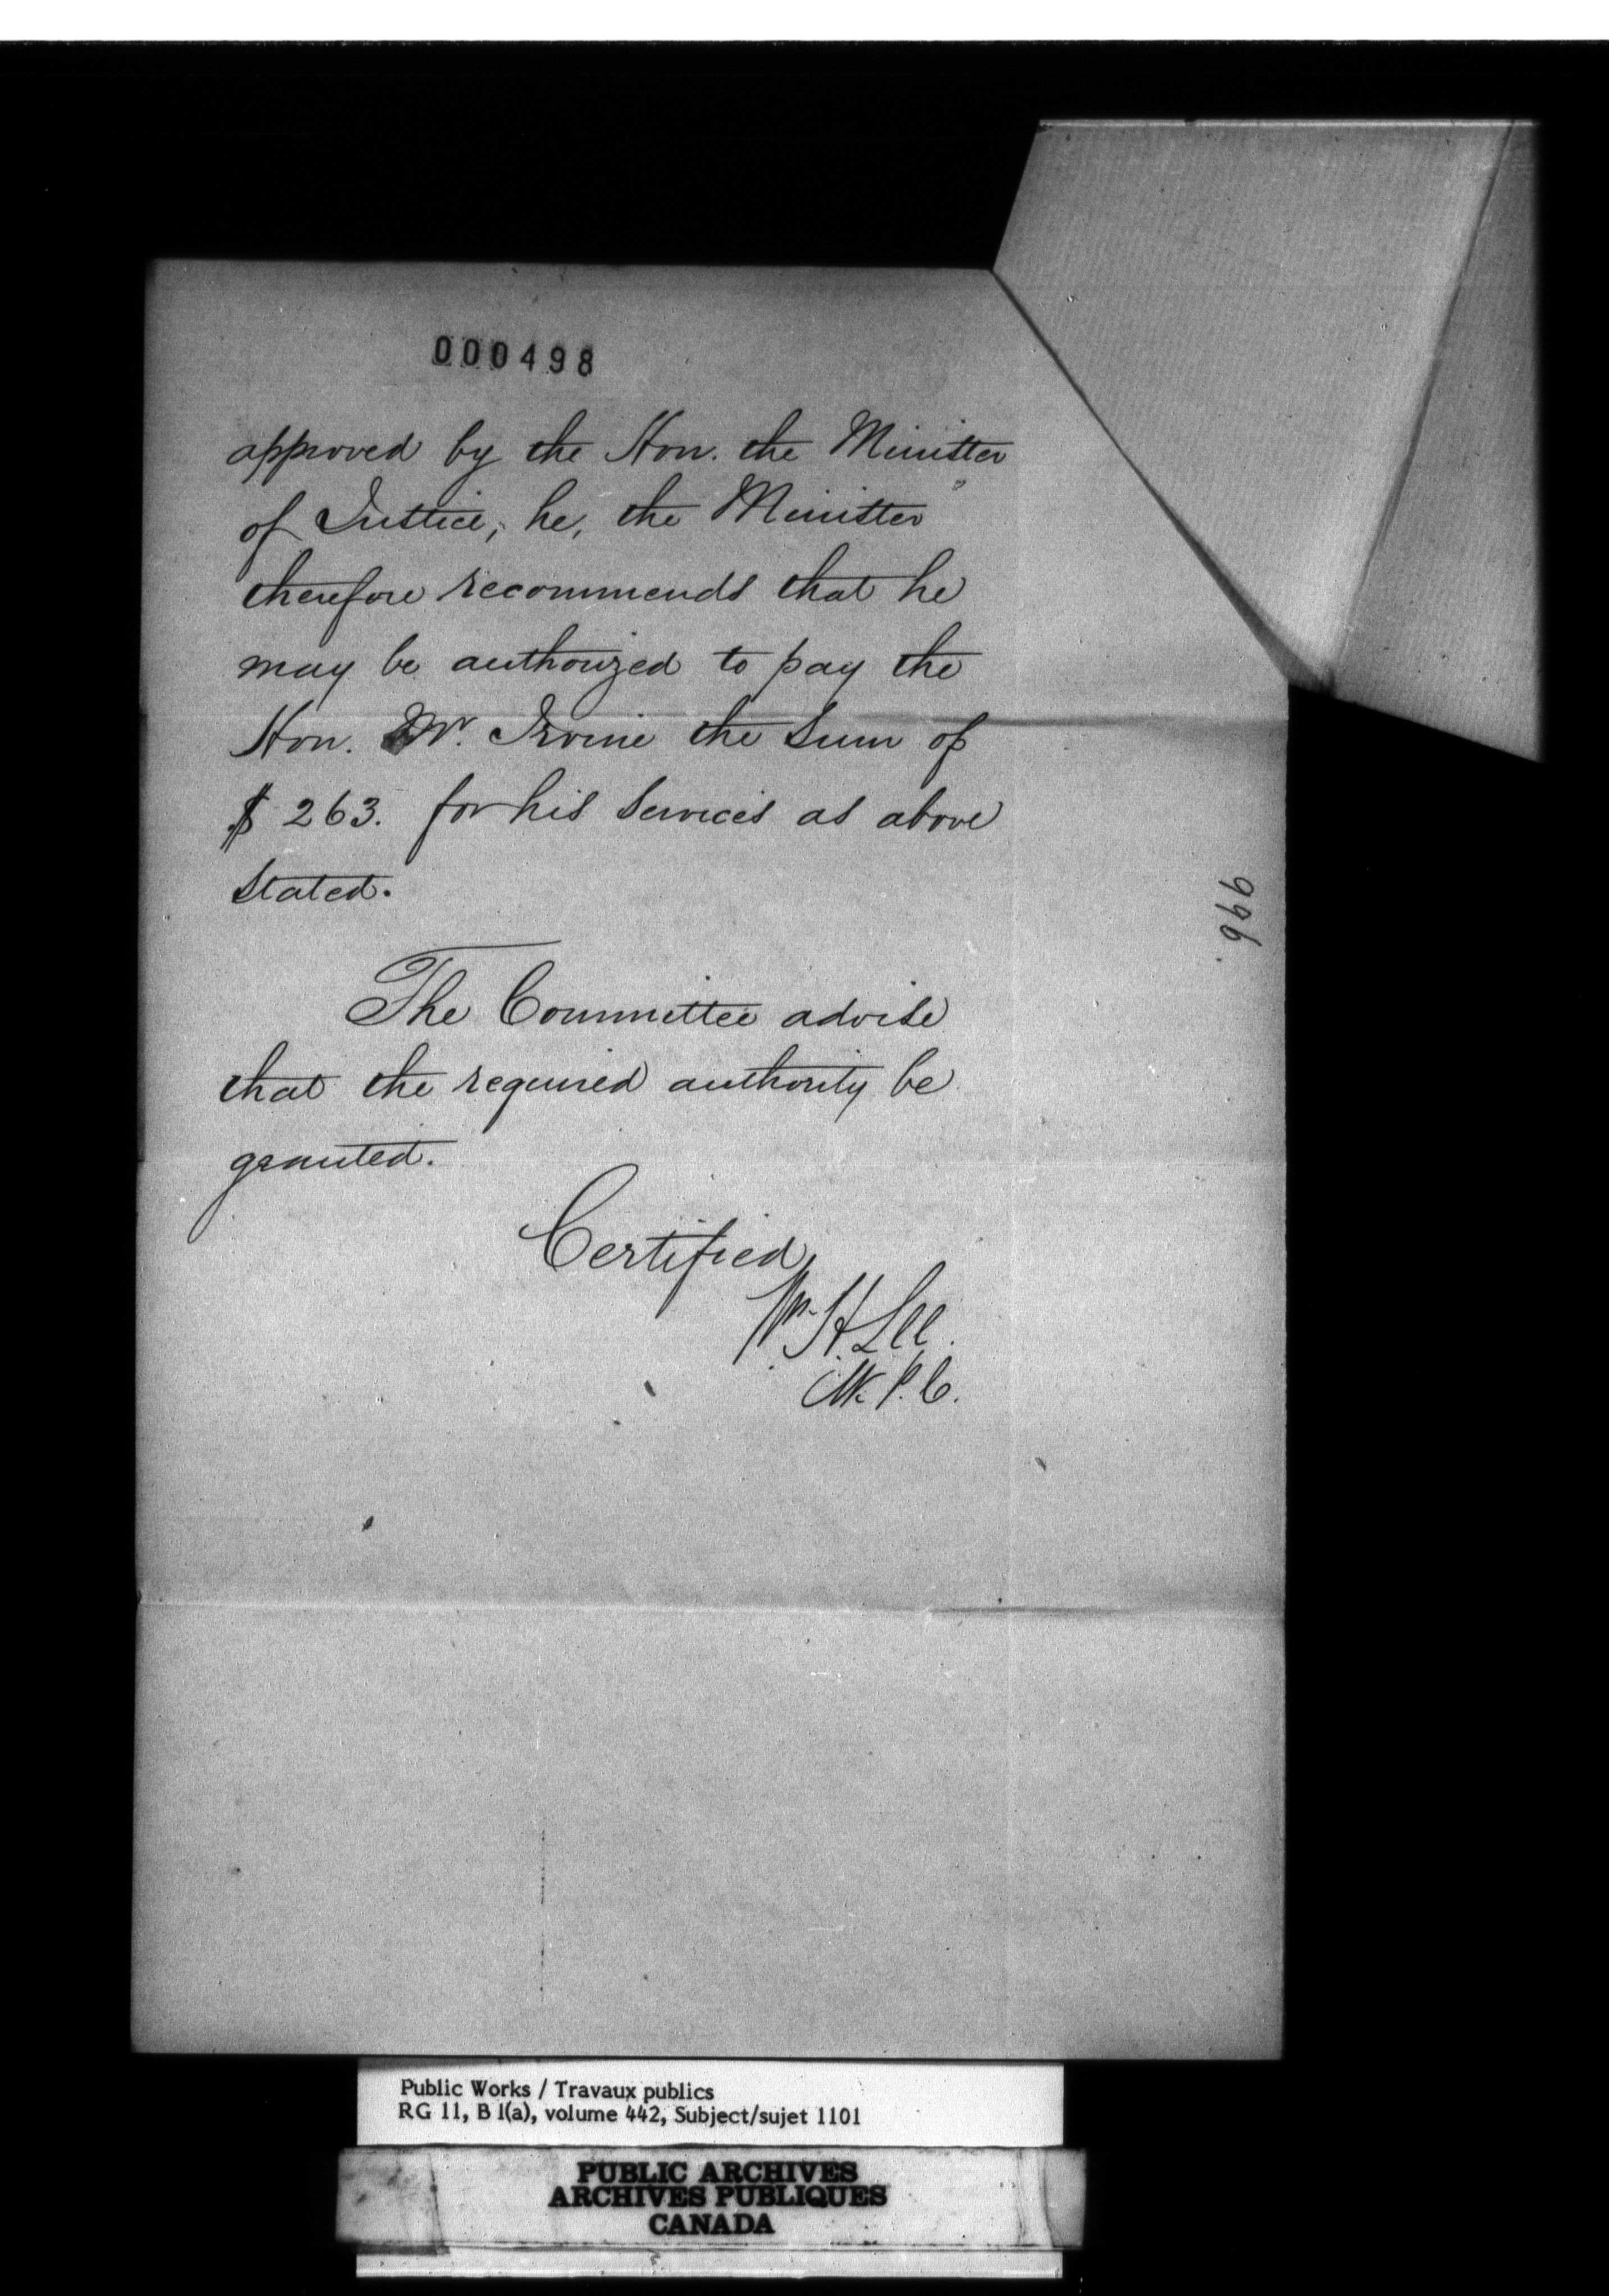 000498
approved by the Hon. the Minister
of Justice, he, the Minister
therefore recommends that he
may be authorized to pay the
Hon. Mr. Irvine the Sum of
$ 263. for his Services as above
Stated.
996.
The Committee advise
that the required authority be
granted.
Certified,
Wm. H. Lee.
C.P.C.
Public Works / Travaux publics
RG 11, B 1(a), volume 442, Subject/sujet 1101
PUBLIC ARCHIVES
ARCHIVES PUBLIQUES
CANADA